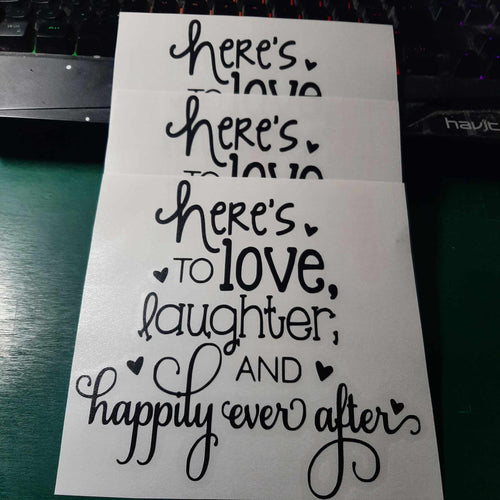 here's
TO love
here's
TO love
here's
TO love,
laughter,
AND
happily ever after
havit